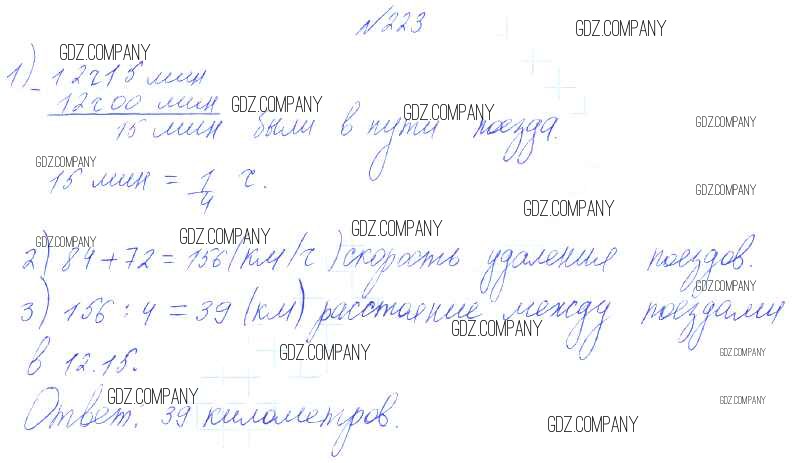 №223
GDZ.COMPANY GDZ.COMPANY
1) - 12ч15 мин
12ч00 мин GDZ.COMPANY GDZ.COMPANY GDZ.COMPANY
15 мин были в пути поезда.
GDZ.COMPANY
15 мин = 1/4 ч. GDZ.COMPANY
GDZ.COMPANY
GDZ.COMPANY GDZ.COMPANY GDZ.COMPANY
2) 84 + 72 = 156 (км/ч) скорость удаления поездов.
GDZ.COMPANY
3) 156 : 4 = 39 (км) расстояние между поездами
GDZ.COMPANY
в 12.15. GDZ.COMPANY GDZ.COMPANY
GDZ.COMPANY GDZ.COMPANY
Ответ. 39 километров. GDZ.COMPANY